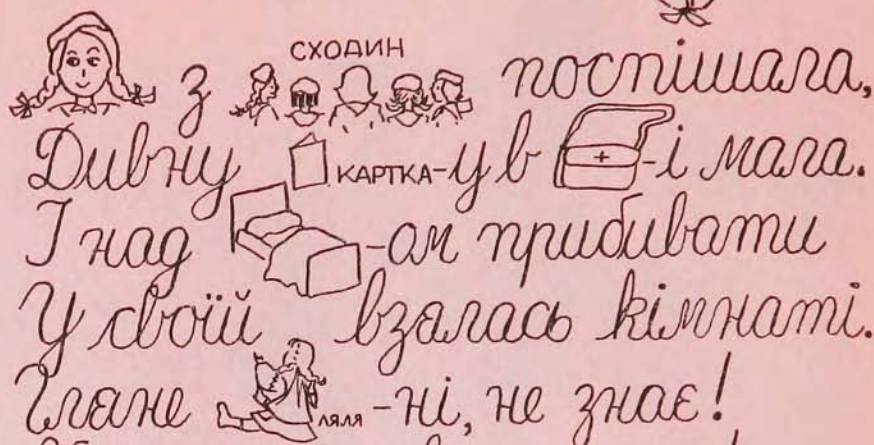 СХОДИН
з поспішала,
Дивну КАРТКА-у в -і мала.
І над -ом прибивати
У своїй взялась кімнаті.
Гляне ляля -ні, не знає!